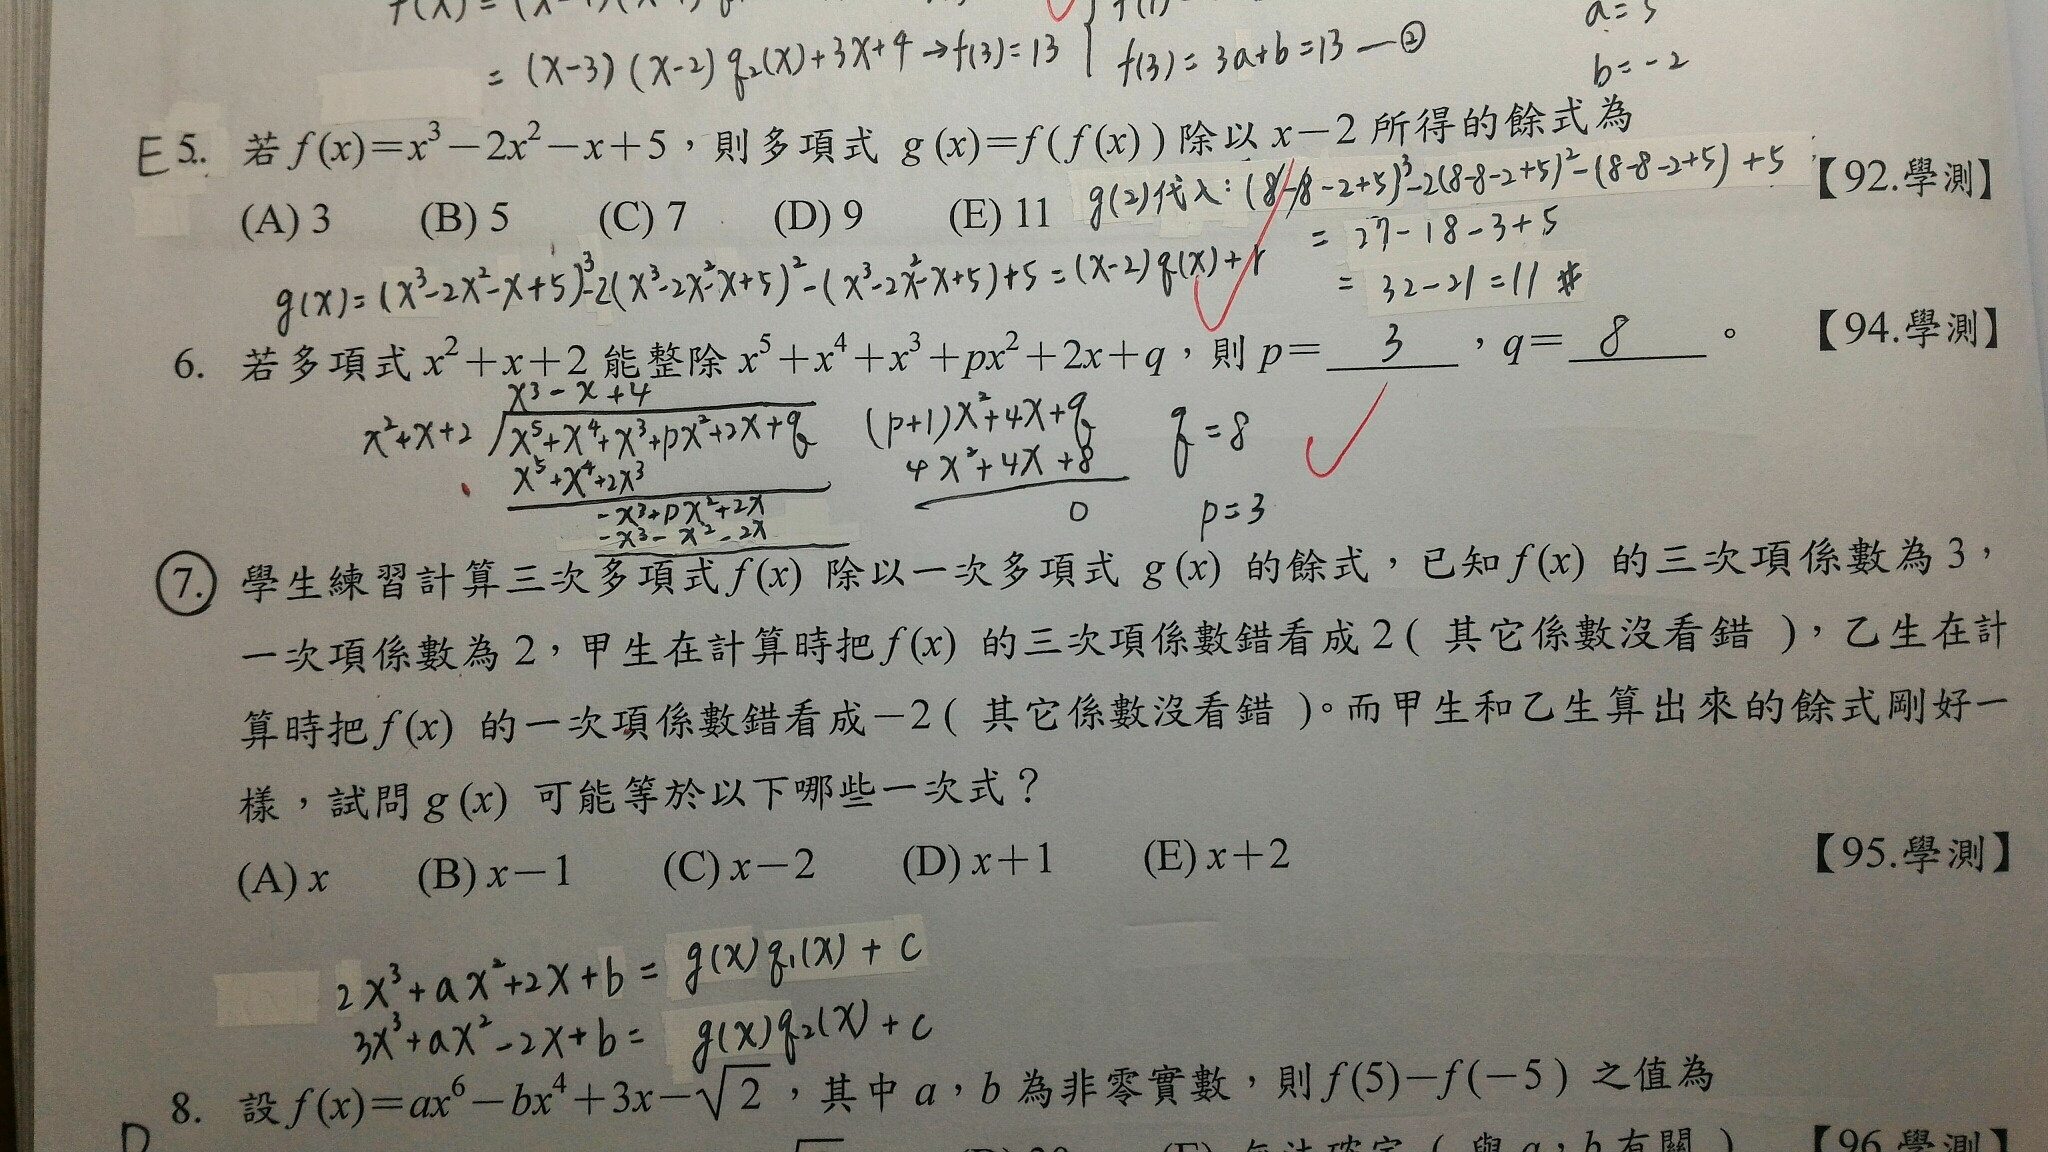 = (x-3)(x-2)q₂(x)+3x+4→f(3)=13 f(3)=3a+b=13—②
b=-2
E 5. 若 f(x)=x³-2x²-x+5,則多項式 g(x)=f(f(x))除以 x-2 所得的餘式為
(A) 3 (B) 5 (C) 7 (D) 9 (E) 11 【92.學測】
g(2)代入:(8-8-2+5)³-2(8-8-2+5)²-(8-8-2+5)+5
= 27-18-3+5
= 32-21=11 #
g(x)=(x³-2x²-x+5)³-2(x³-2x²-x+5)²-(x³-2x²-x+5)+5=(x-2)q(x)+r
6. 若多項式 x²+x+2 能整除 x⁵+x⁴+x³+px²+2x+q,則 p= 3 ,q= 8 。 【94.學測】
x³-x+4
x²+x+2 x⁵+x⁴+x³+px²+2x+q
x⁵+x⁴+2x³
-x³+px²+2x
-x³-x²-2x
(p+1)x²+4x+q
4x²+4x+8
0
q=8
p=3
7. 學生練習計算三次多項式 f(x) 除以一次多項式 g(x) 的餘式,已知 f(x) 的三次項係數為 3,
一次項係數為 2,甲生在計算時把 f(x) 的三次項係數錯看成 2(其它係數沒看錯),乙生在計
算時把 f(x) 的一次項係數錯看成-2(其它係數沒看錯)。而甲生和乙生算出來的餘式剛好一
樣,試問 g(x) 可能等於以下哪些一次式?
(A) x (B) x-1 (C) x-2 (D) x+1 (E) x+2 【95.學測】
2x³+ax²+2x+b= g(x)q₁(x)+c
3x³+ax²-2x+b= g(x)q₂(x)+c
8. 設 f(x)=ax⁶-bx⁴+3x-√2,其中 a,b 為非零實數,則 f(5)-f(-5) 之值為